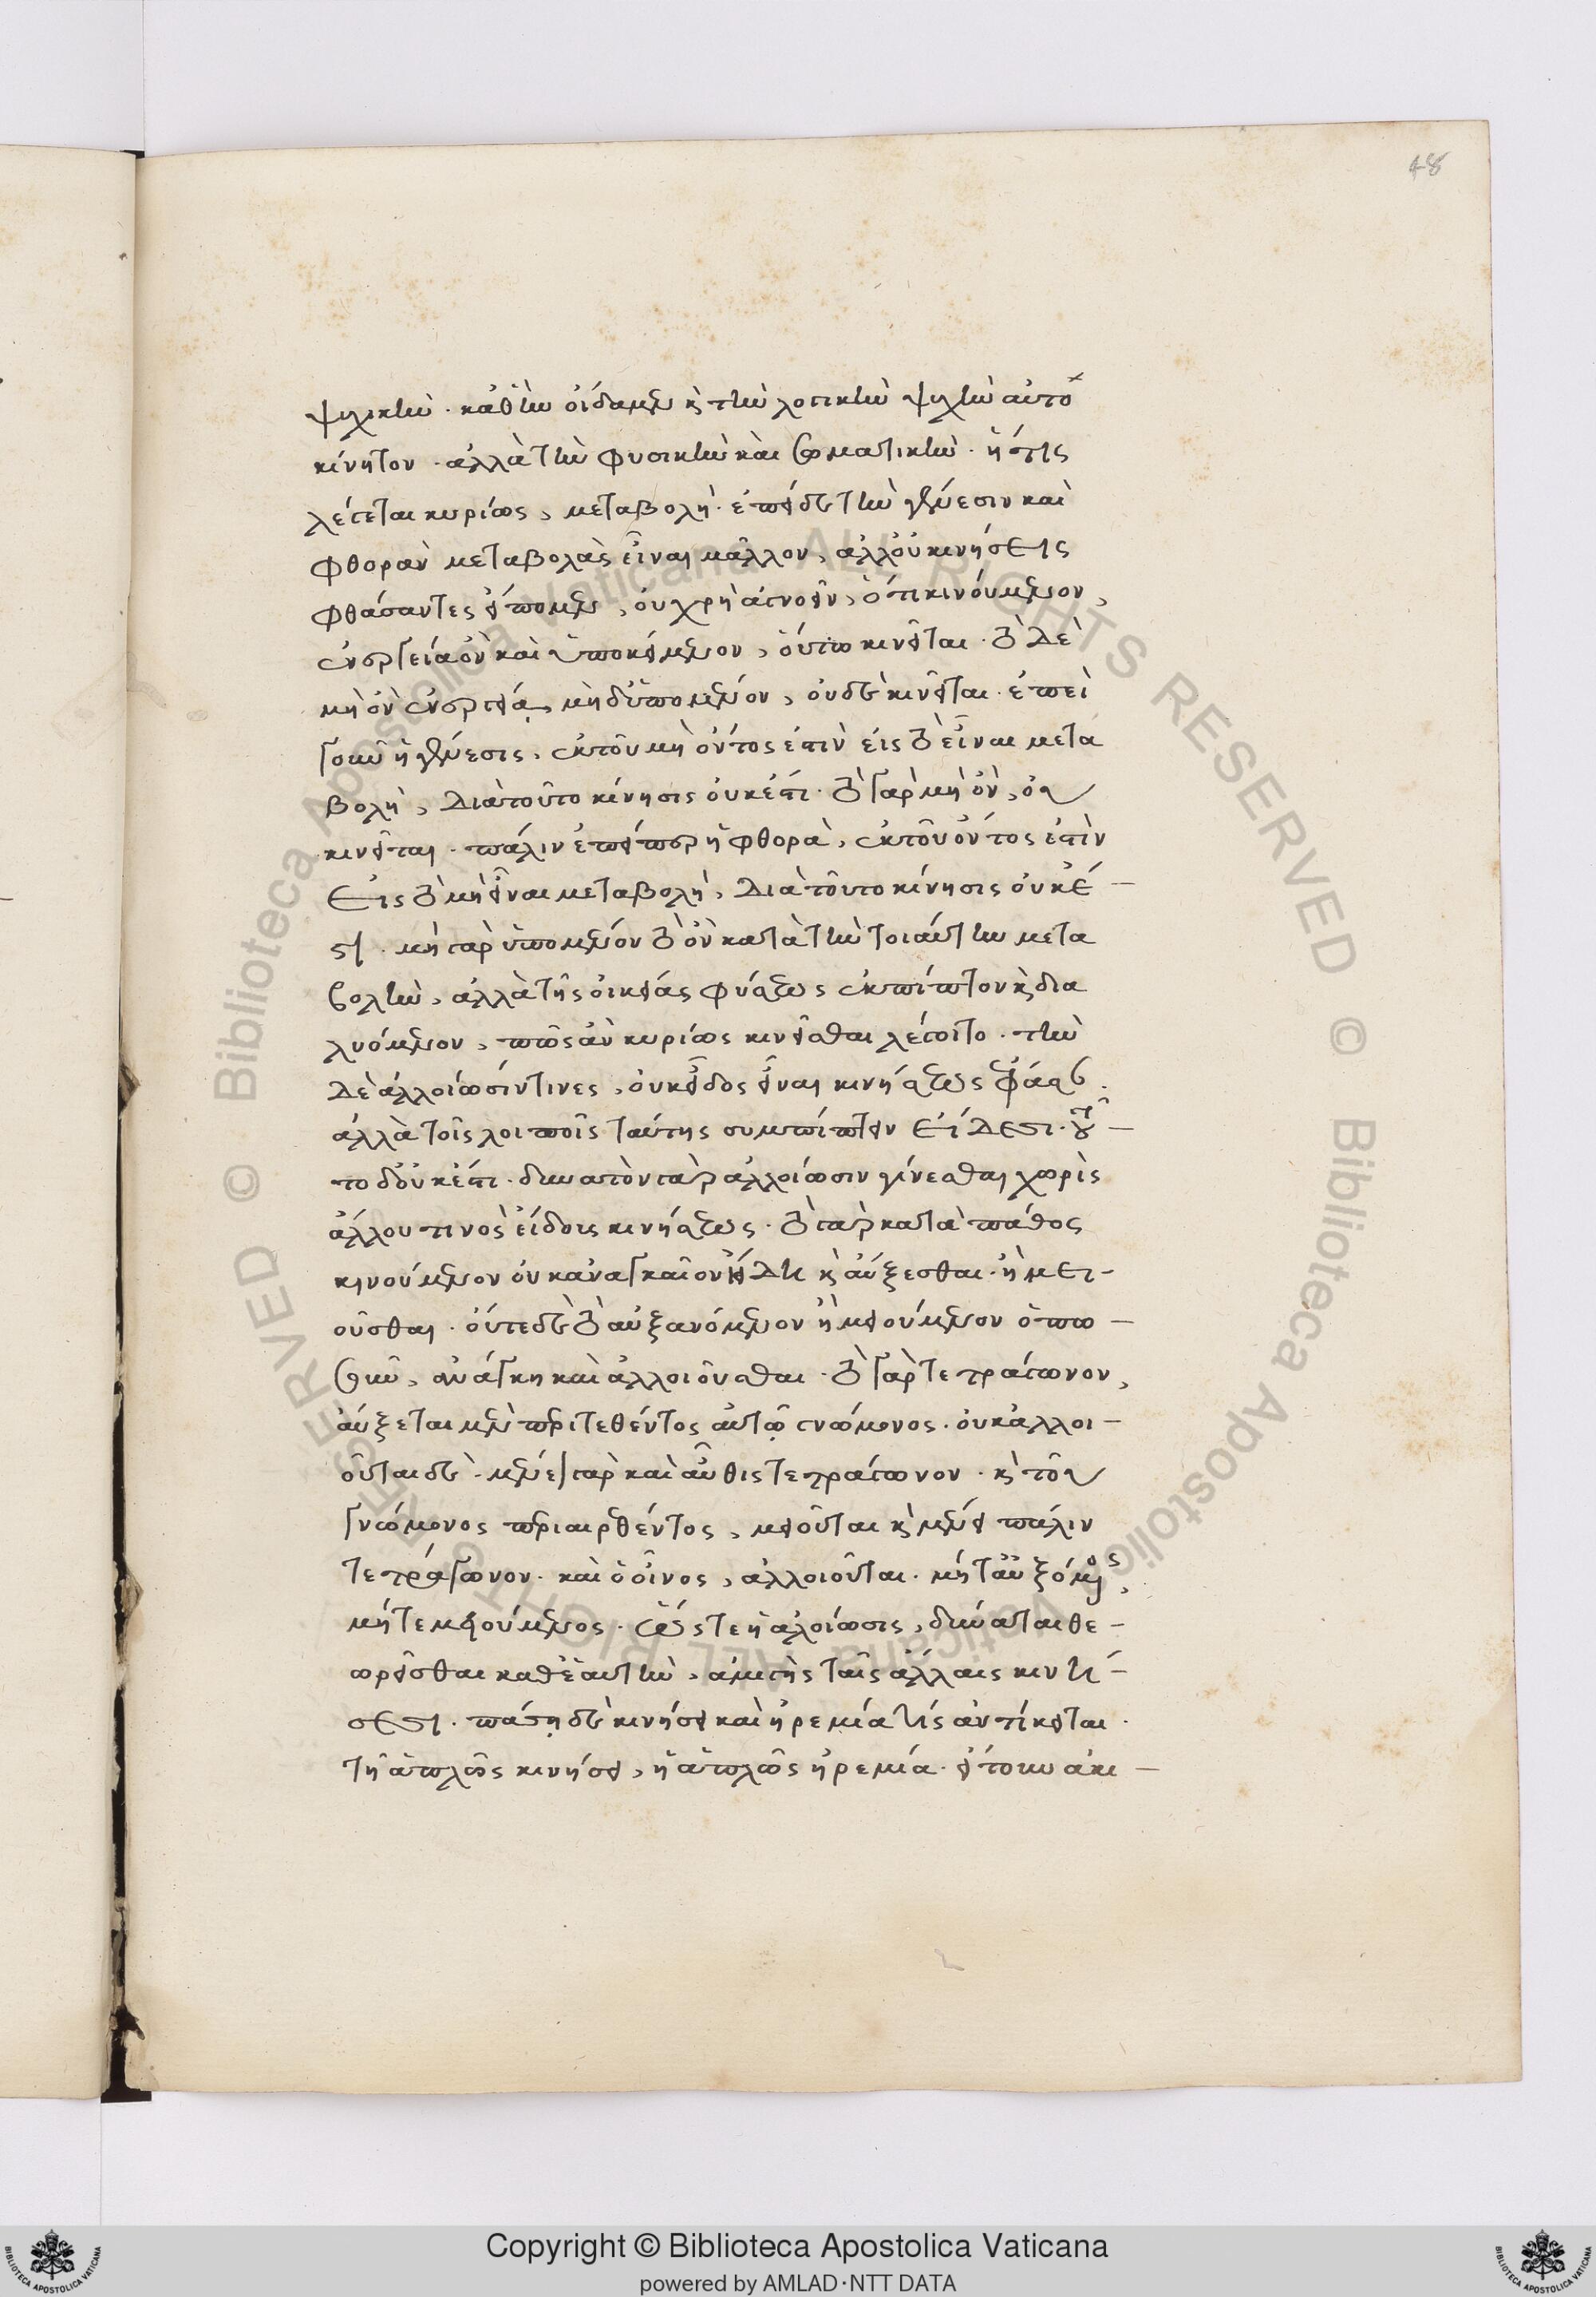 48
ψυχικὴν · καθ' ἣν οἴδαμεν κ(αὶ) τὴν λογικὴν ψυχὴν αὐτο
κίνητον · ἀλλὰ τὴν φυσικὴν καὶ σωματικὴν · ἥτις
λέγεται κυρίως, μεταβολή · ἐπεὶ δὲ τὴν γένεσιν καὶ
φθορὰν μεταβολὰς εἶναι μᾶλλον, ἀλλ' οὐ κινήσεις
φθάσαντες εἴπομεν, οὐ χρὴ ἀγνοεῖν, ὅτι κινούμενον,
ἐνεργείᾳ ὂν καὶ ὑποκείμενον, οὕτω κινεῖται · τὸ δὲ
μὴ ὂν ἐνεργείᾳ, μηδ' ὑπομένον, οὐδὲ κινεῖται · ἐπεὶ
γοῦν ἡ γένεσις, ἐκ τοῦ μὴ ὄντος ἐστὶν εἰς τὸ εἶναι μετα
βολὴ, διὰ τοῦτο κίνησις οὐκ ἔστι · τὸ γὰρ μὴ ὂν, οὐ
κινεῖται · πάλιν ἐπείπερ ἡ φθορὰ, ἐκ τοῦ ὄντος ἐστὶν
εἰς τὸ μὴ εἶναι μεταβολὴ, διὰ τοῦτο κίνησις οὐκ ἔ-
στι · μὴ γὰρ ὑπομένον τὸ ὂν κατὰ τὴν τοιαύτην μετα
βολὴν, ἀλλὰ τῆς οἰκείας φύσεως ἐκπίπτον κ(αὶ) δια
λυόμενον, πῶς ἂν κυρίως κινεῖσθαι λέγοιτο · τὴν
δὲ ἀλλοίωσίν τινες, οὐκ εἶδος εἶναι κινήσεως φασὶ ·
ἀλλὰ τοῖς λοιποῖς ταύτης συμπίπτειν εἴδεσι · τοῦ-
το δ' οὐκ ἔστι · δυνατὸν γὰρ ἀλλοίωσιν γίνεσθαι χωρὶς
ἄλλου τινὸς εἴδους κινήσεως · τὸ γὰρ κατὰ πάθος
κινούμενον οὐκ ἀναγκαῖον ἤδη κ(αὶ) αὔξεσθαι · ἢ μει-
οῦσθαι · οὔτε δὲ τὸ αὐξανόμενον ἢ μειούμενον ὁπω-
σοῦν, ἀνάγκη καὶ ἀλλοιοῦσθαι · τὸ γὰρ τετράγωνον,
αὔξεται μὲν περιτεθέντος αὐτῷ γνώμονος · οὐκ ἀλλοι-
οῦται δὲ · μένει γὰρ καὶ αὖθις τετράγωνον · κ(αὶ) τοῦ
γνώμονος περιαιρεθέντος, μειοῦται κ(αὶ) μένει πάλιν
τετράγωνον · καὶ ὁ οἶνος, ἀλλοιοῦται · μήτ' αὐξόμενος,
μήτε μειούμενος · ὥστε ἡ ἀλοίωσις, δύναται θε-
ωρεῖσθαι καθ' ἑαυτὴν, ἀμιγὴς ταῖς ἄλλαις κινή-
σεσι · πάσῃ δὲ κινήσει καὶ ἠρεμία τίς ἀντίκειται ·
τῇ ἁπλῶς κινήσει, ἡ ἁπλῶς ἠρεμία · εἴτουν ἀκι-
Copyright © Biblioteca Apostolica Vaticana
powered by AMLAD·NTT DATA